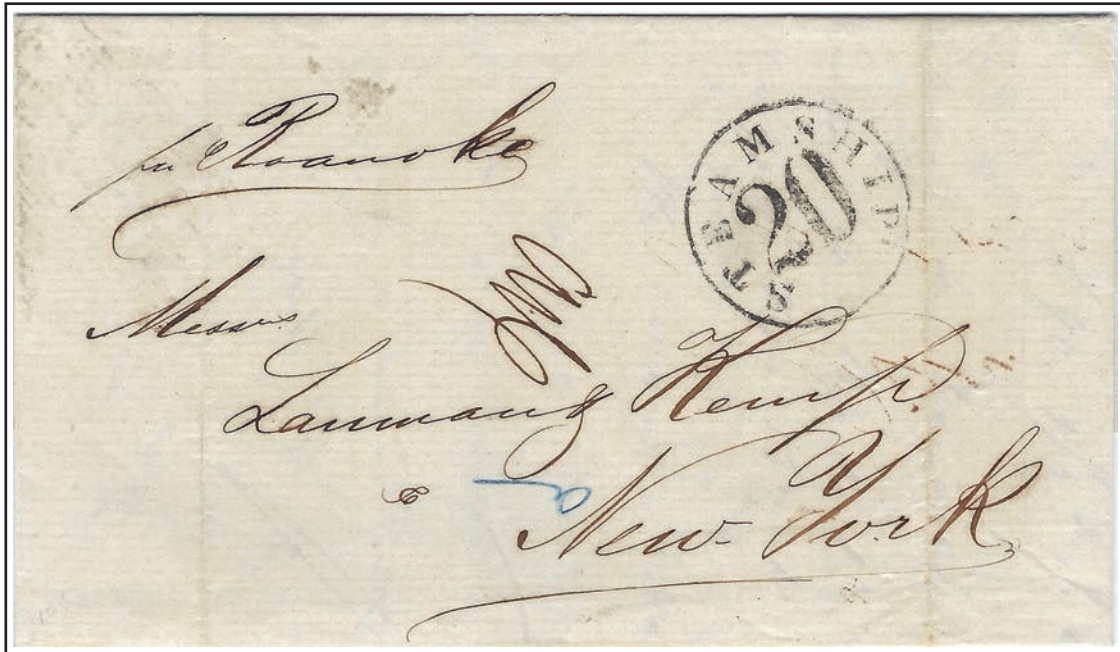 per Roanoke
STEAMSHIP
20
Messrs
Lanman & Kemp.
New-York